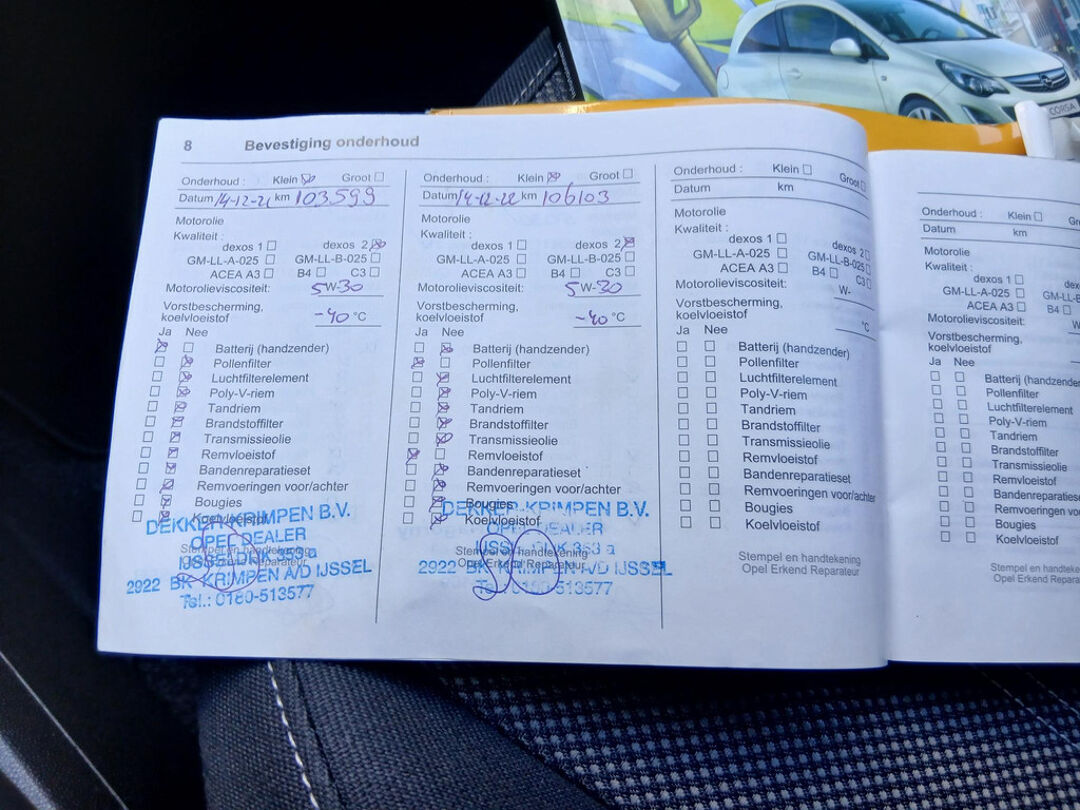 8 Bevestiging onderhoud
Onderhoud : Klein Groot
Datum 14-12-21 km 103.599
Motorolie
Kwaliteit :
dexos 1 dexos 2
GM-LL-A-025 GM-LL-B-025
ACEA A3 B4 C3
Motorolieviscositeit: 5W-30
Vorstbescherming,
koelvloeistof -40 °C
Ja Nee
Batterij (handzender)
Pollenfilter
Luchtfilterelement
Poly-V-riem
Tandriem
Brandstoffilter
Transmissieolie
Remvloeistof
Bandenreparatieset
Remvoeringen voor/achter
Bougies
Koelvloeistof
DEKKER-KRIMPEN B.V.
OPEL DEALER
Stempel en handtekening
IJSSELDIJK 353 a
2922 BK KRIMPEN A/D IJSSEL
Tel.: 0180-513577
Onderhoud : Klein Groot
Datum 14-12-22 km 106103
Motorolie
Kwaliteit :
dexos 1 dexos 2
GM-LL-A-025 GM-LL-B-025
ACEA A3 B4 C3
Motorolieviscositeit: 5W-30
Vorstbescherming,
koelvloeistof -40 °C
Ja Nee
Batterij (handzender)
Pollenfilter
Luchtfilterelement
Poly-V-riem
Tandriem
Brandstoffilter
Transmissieolie
Remvloeistof
Bandenreparatieset
Remvoeringen voor/achter
Bougies
DEKKER-KRIMPEN B.V.
Koelvloeistof
OPEL DEALER
Stempel en handtekening
353 a
Opel Erkend Reparateur
2922 BK KRIMPEN A/D IJSSEL
0180-513577
Onderhoud : Klein Groot
Datum km
Motorolie
Kwaliteit :
dexos 1 dexos 2
GM-LL-A-025 GM-LL-B-025
ACEA A3 B4 C3
Motorolieviscositeit: W-
Vorstbescherming,
koelvloeistof °C
Ja Nee
Batterij (handzender)
Pollenfilter
Luchtfilterelement
Poly-V-riem
Tandriem
Brandstoffilter
Transmissieolie
Remvloeistof
Bandenreparatieset
Remvoeringen voor/achter
Bougies
Koelvloeistof
Stempel en handtekening
Opel Erkend Reparateur
Onderhoud : Klein
Datum km
Motorolie
Kwaliteit :
dexos 1
GM-LL-A-025
ACEA A3 B4
Motorolieviscositeit: W
Vorstbescherming,
koelvloeistof
Ja Nee
Batterij (handzender
Pollenfilter
Luchtfilterelement
Poly-V-riem
Tandriem
Brandstoffilter
Transmissieolie
Remvloeistof
Bandenreparatieset
Remvoeringen
Bougies
Koelvloeistof
Stempel en
Opel Erkend Reparateur
CORSA